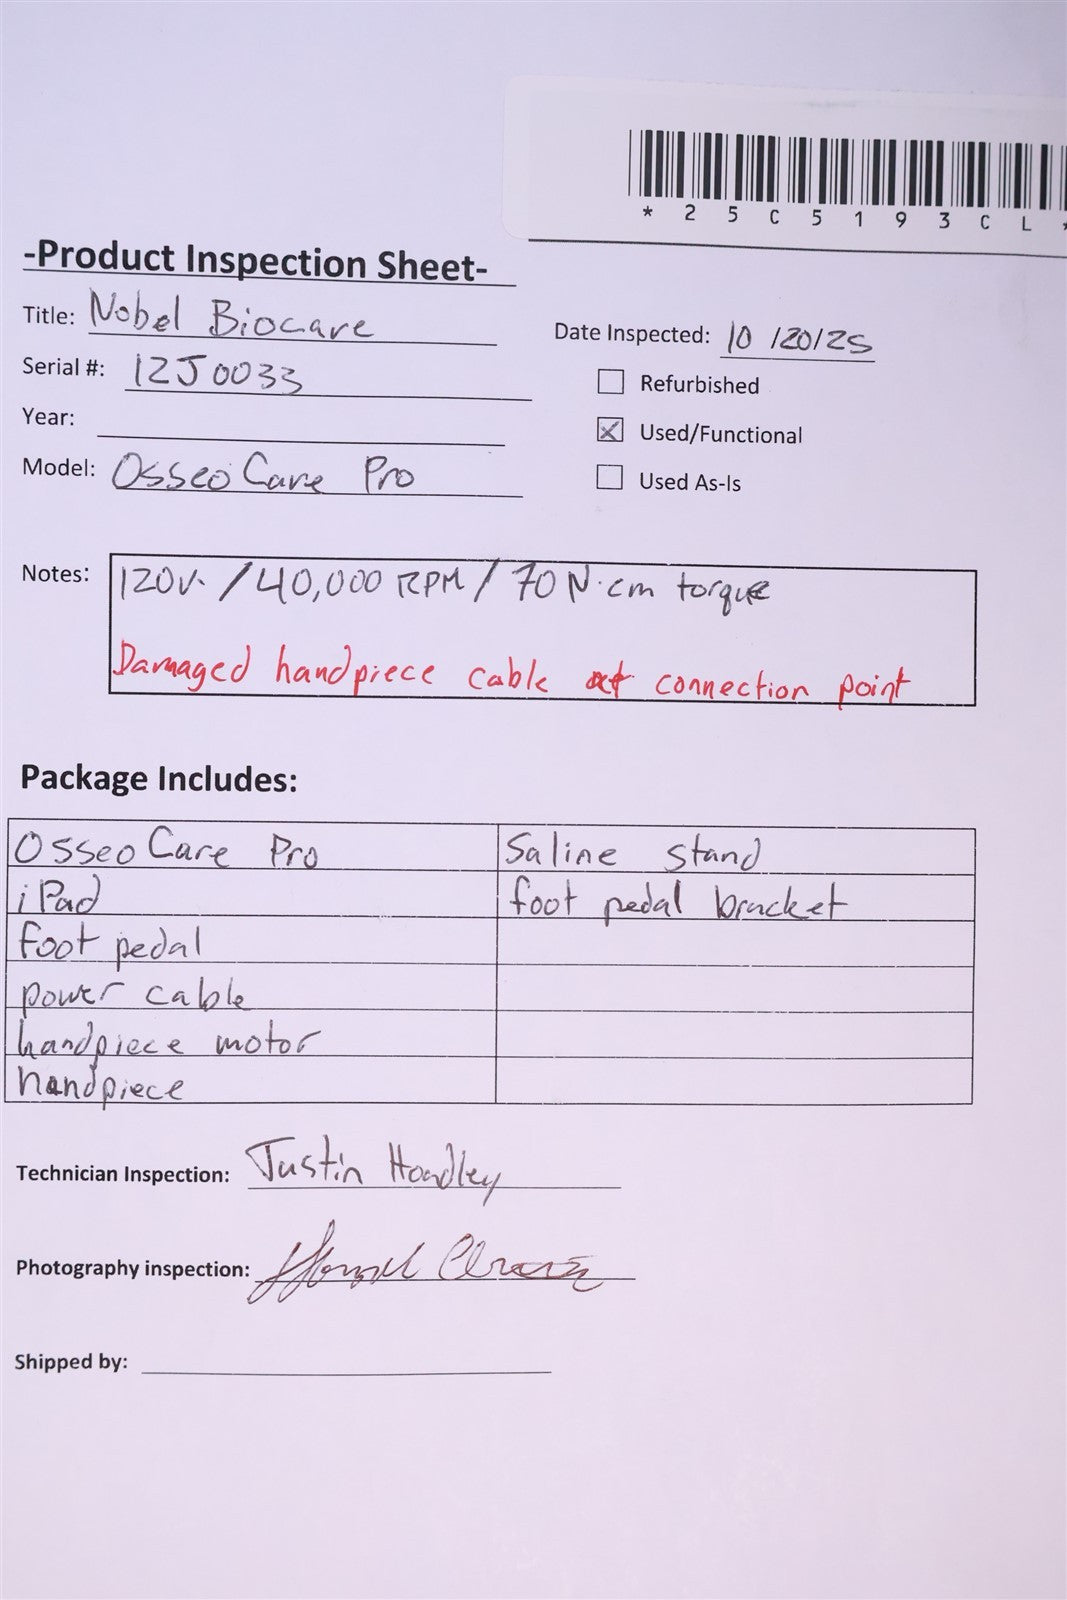 * 2 5 C 5 1 9 3 C L *
-Product Inspection Sheet-
Title: Nobel Biocare
Date Inspected: 10/20/25
Serial #: 12J0033
Refurbished
Year:
Used/Functional
Model: OsseoCare Pro
Used As-Is
Notes: 120v. / 40,000 RPM / 70 N·cm torque
Damaged handpiece cable at connection point
Package Includes:
OsseoCare Pro Saline stand
iPad foot pedal bracket
foot pedal
power cable
handpiece motor
handpiece
Technician Inspection: Justin Hoadley
Photography inspection:
Shipped by: